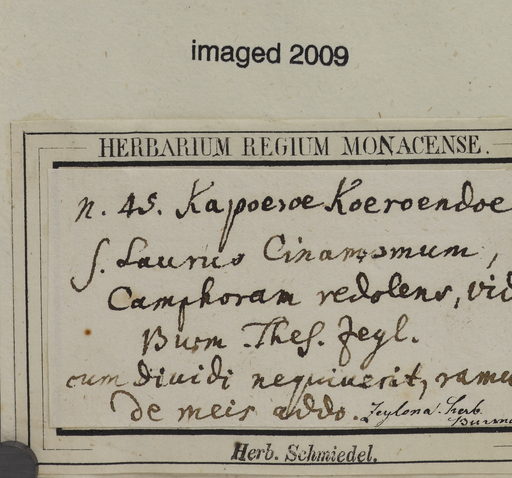 imaged 2009
HERBARIUM REGIUM MONACENSE.
n. 45. Kapoeroe Koeroendoe
s. Laurus Cinamomum,
Camphoram redolens, vid
Burm. Thes. Zeyl.
cum dividi nequiverit, ramu
de meis addo. Zeylona. herb.
Burma
Herb. Schmiedel.